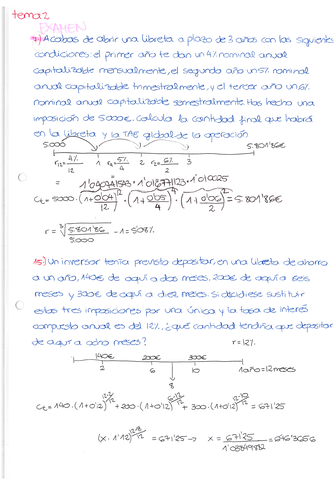 tema 2
EXAMEN
7) Acabas de abrir una libreta a plazo de 3 años con las siguientes
condiciones: el primer año te dan un 4% nominal anual
capitalizable mensualmente, el segundo año un 5% nominal
anual capitalizable trimestralmente, y el tercer año un 6%
nominal anual capitalizable semestralmente. Has hecho una
imposición de 5.000€. Calcula la cantidad final que habrá
en la libreta y la TAE global de la operación
5000 5.801'86€
r12 = 4%/12 1 r4 = 5%/4 2 r2 = 6%/2 3
= 1'040741543 · 1'01 · 1'0
Ct = 5000 · (1 + 0'04/12)^12 · (1 + 0'05/4)^4 · (1 + 0'06/2)^2 = 5.801'86€
r = ∛5.801'86/5000 - 1 = 5'08%
15) Un inversor tenía previsto depositar, en una libreta de ahorro
a un año, 140€ de aquí a dos meses, 200€ de aquí a seis
meses y 300€ de aquí a diez meses. Si decidiese sustituir
estas tres imposiciones por una única y la tasa de interés
compuesto anual es del 12%, ¿qué cantidad tendría que depositar
de aquí a ocho meses? r = 12%
140€ 200€ 300€
2 6 10 1 año = 12 meses
8
Ct = 140 · (1+0'12)^12-2/12 + 200 · (1+0'12)^6-12/12 + 300 · (1+0'12)^12-10/12 = 671'25
(x · 1'12)^12-8/12 = 671'25 → x = 671'25/1'03849882 = 646'3656